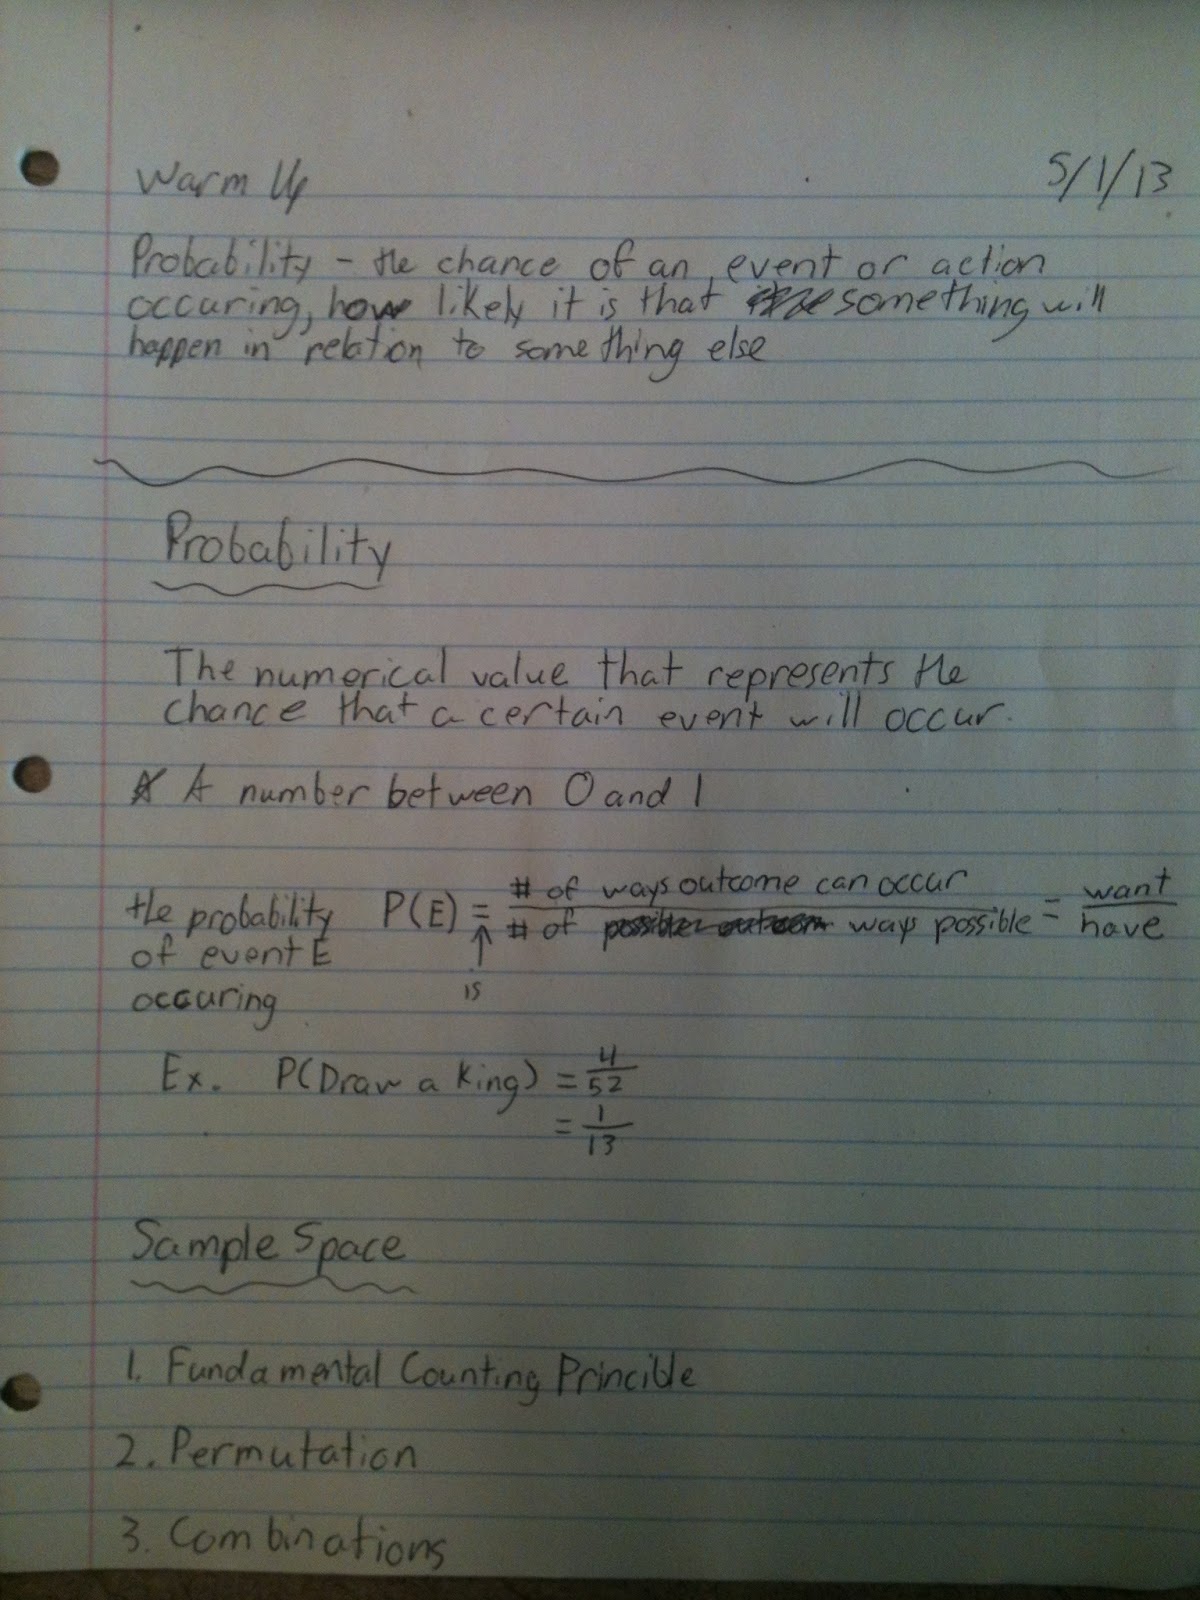 Warm Up 5/1/13
Probability - the chance of an event or action
occuring, how likely it is that something will
happen in relation to something else
Probability
The numerical value that represents the
chance that a certain event will occur.
A number between 0 and 1
the probability P(E) = # of ways outcome can occur / # of possible outcom ways possible = want / have
of event E is
occuring
Ex. P(Draw a King) = 4/52
= 1/13
Sample Space
1. Fundamental Counting Princible
2. Permutation
3. Combinations